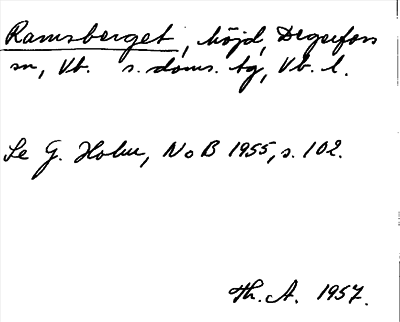 Ramsberget, höjd, Degerfors
sn, Vb. s. doms. tg, Vb. l.
Se G. Holm, NoB 1955, s. 102.
Th. A. 1957.